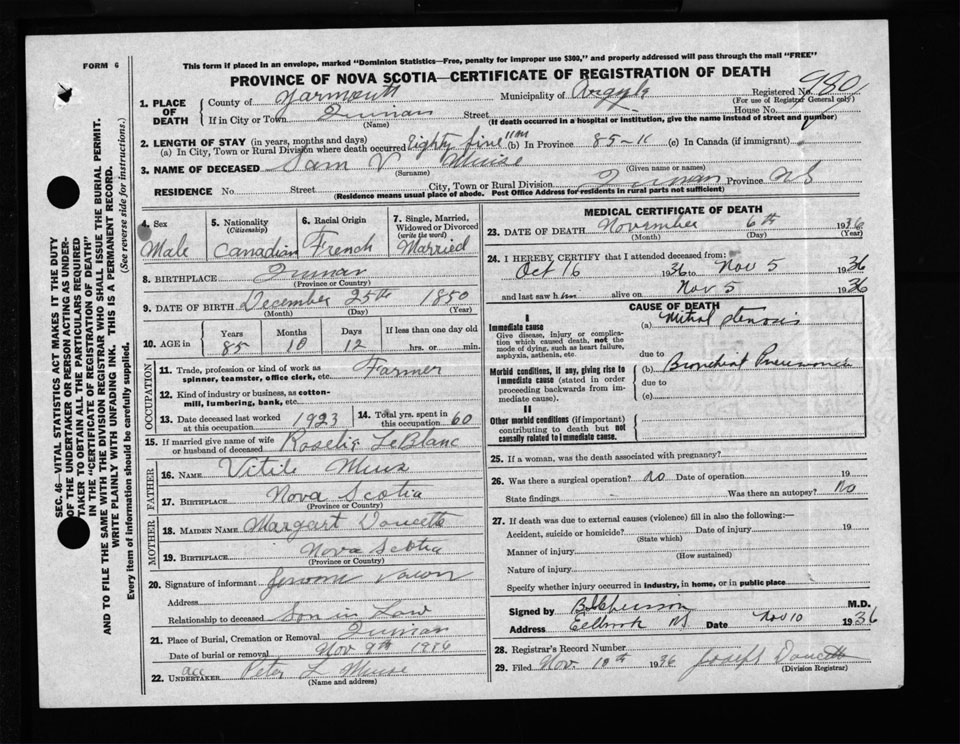 FORM 6
This form if placed in an envelope, marked "Dominion Statistics—Free, penalty for improper use $300," and properly addressed will pass through the mail "FREE"
PROVINCE OF NOVA SCOTIA—CERTIFICATE OF REGISTRATION OF DEATH
Registered No. 980
(For use of Registrar General only)
1. PLACE OF DEATH
County of Yarmouth Municipality of Argyle
If in City or Town Quinan Street House No.
(Name) (If death occurred in a hospital or institution, give the name instead of street and number)
2. LENGTH OF STAY (in years, months and days)
(a) In City, Town or Rural Division where death occurred Eighty five 11m (b) In Province 85-11 (c) In Canada (if immigrant)
3. NAME OF DECEASED Sam V Muise
(Surname) (Given name or names)
RESIDENCE No. Street City, Town or Rural Division Quinan Province NS
(Residence means usual place of abode. Post Office Address for residents in rural parts not sufficient)
4. Sex Male
5. Nationality (Citizenship) Canadian
6. Racial Origin French
7. Single, Married, Widowed or Divorced (write the word) Married
8. BIRTHPLACE Quinan
(Province or Country)
9. DATE OF BIRTH December 25th 1850
(Month) (Day) (Year)
10. AGE in Years 85 Months 10 Days 12 If less than one day old hrs. or min.
OCCUPATION
11. Trade, profession or kind of work as spinner, teamster, office clerk, etc. Farmer
12. Kind of industry or business, as cotton-mill, lumbering, bank, etc.
13. Date deceased last worked at this occupation 1923
14. Total yrs. spent in this occupation 60
15. If married give name of wife or husband of deceased Roselie LeBlanc
FATHER
16. NAME Vitile Muis
17. BIRTHPLACE Nova Scotia
(Province or Country)
MOTHER
18. MAIDEN NAME Margart Doucette
19. BIRTHPLACE Nova Scotia
(Province or Country)
20. Signature of informant
Address
Relationship to deceased Son in Law
21. Place of Burial, Cremation or Removal Quinan
Date of burial or removal Nov 9th 1936
22. UNDERTAKER Peter L Muise
(Name and address)
MEDICAL CERTIFICATE OF DEATH
23. DATE OF DEATH November 6th 1936
(Month) (Day) (Year)
24. I HEREBY CERTIFY that I attended deceased from:
Oct 16 1936 to Nov 5 1936
and last saw him alive on Nov 5 1936
CAUSE OF DEATH
I
Immediate cause
Give disease, injury or complication which caused death, not the mode of dying, such as heart failure, asphyxia, asthenia, etc.
(a) Mitral Stenosis
due to
Morbid conditions, if any, giving rise to immediate cause (stated in order proceeding backwards from immediate cause).
(b) Bronchial Pneumonia
due to
(c)
II
Other morbid conditions (if important) contributing to death but not causally related to immediate cause.
25. If a woman, was the death associated with pregnancy?
26. Was there a surgical operation? no Date of operation 19
State findings Was there an autopsy? No
27. If death was due to external causes (violence) fill in also the following:—
Accident, suicide or homicide? Date of injury 19
(State which)
Manner of injury
(How sustained)
Nature of injury
Specify whether injury occurred in industry, in home, or in public place
Signed by M.D.
Address Eelbrook NS Date Nov 10 1936
28. Registrar's Record Number
29. Filed Nov. 10th 1936 Joseph Doucette
(Division Registrar)
SEC. 46—VITAL STATISTICS ACT MAKES IT THE DUTY
OF THE UNDERTAKER OR PERSON ACTING AS UNDER-
TAKER TO OBTAIN ALL THE PARTICULARS REQUIRED
IN THE "CERTIFICATE OF REGISTRATION OF DEATH"
AND TO FILE THE SAME WITH THE DIVISION REGISTRAR WHO SHALL ISSUE THE BURIAL PERMIT.
WRITE PLAINLY WITH UNFADING INK. THIS IS A PERMANENT RECORD.
Every item of information should be carefully supplied. (See reverse side for instructions.)